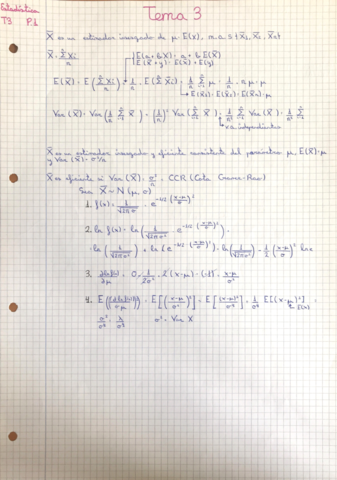 Estadística
T3 P.1
Tema 3
X̄ es un estimador insesgado de μ = E(x), m.a.s
X̄ = Σxi / n
E(a+bX) = a + bE(X)
E(X+y) = E(x) + E(y)
E(X̄) = E(Σxi / n) = 1/n · E(Σxi) = 1/n Σ μ = 1/n · n · μ = μ
Var(X̄) = Var(1/n Σ X) = (1/n)² Var(Σ X) = 1/n² Σ Var(X) = 1/n² Σ
v.a. independientes
X̄ es un estimador insesgado y eficiente consistente del parámetro μ, E(X̄) = μ
y Var(X̄) = σ²/n
X̄ es eficiente si Var(X̄) = σ²/n = CCR (Cota Cramer-Rao)
Sea X ~ N(μ, σ)
1. f(x) = 1/√(2πσ) · e^(-1/2 ((x-μ)/σ)²)
2. ln f(x) = ln(1/√(2πσ²) · e^(-1/2 ((x-μ)/σ)²)) =
= ln(1/√(2πσ²)) + ln(e^(-1/2 ((x-μ)/σ)²)) = ln(1/√(2πσ²)) - 1/2 ((x-μ)/σ)²
3. ∂ln f(x)/∂μ = 0 - 1/2σ² · 2(x-μ) · (-1) = (x-μ)/σ²
4. E[(∂ln f(x)/∂μ)²] = E[((x-μ)/σ²)²] = E[(x-μ)²/σ⁴] = 1/σ⁴ E[(x-μ)²] =
E(x)
σ²/σ⁴ = 1/σ² σ² = Var X